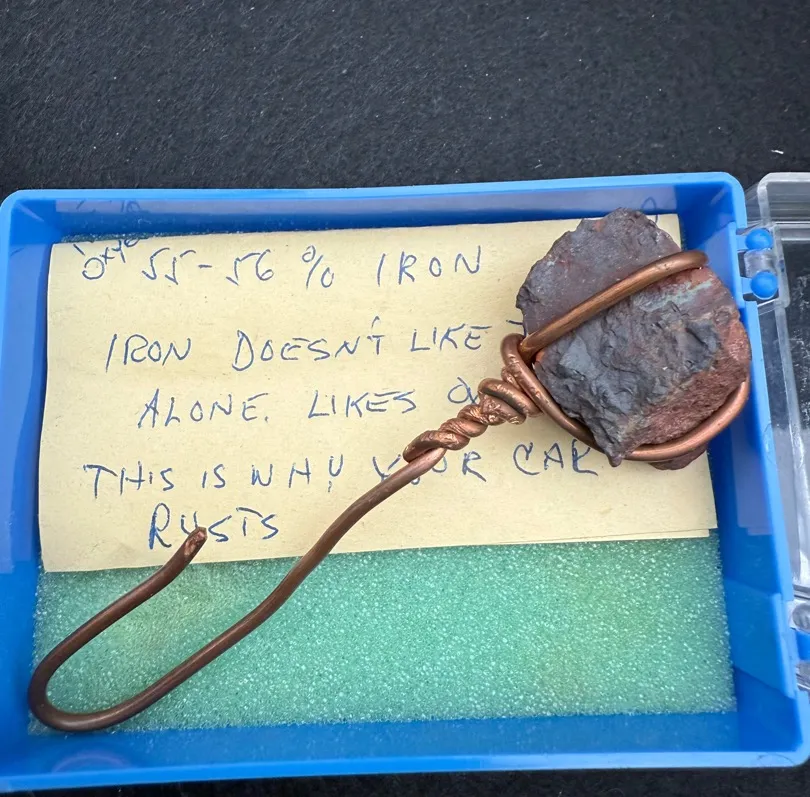 55-56 % IRON
IRON DOESN'T LIKE
ALONE. LIKES
THIS IS WHY YOUR CAR
RUSTS